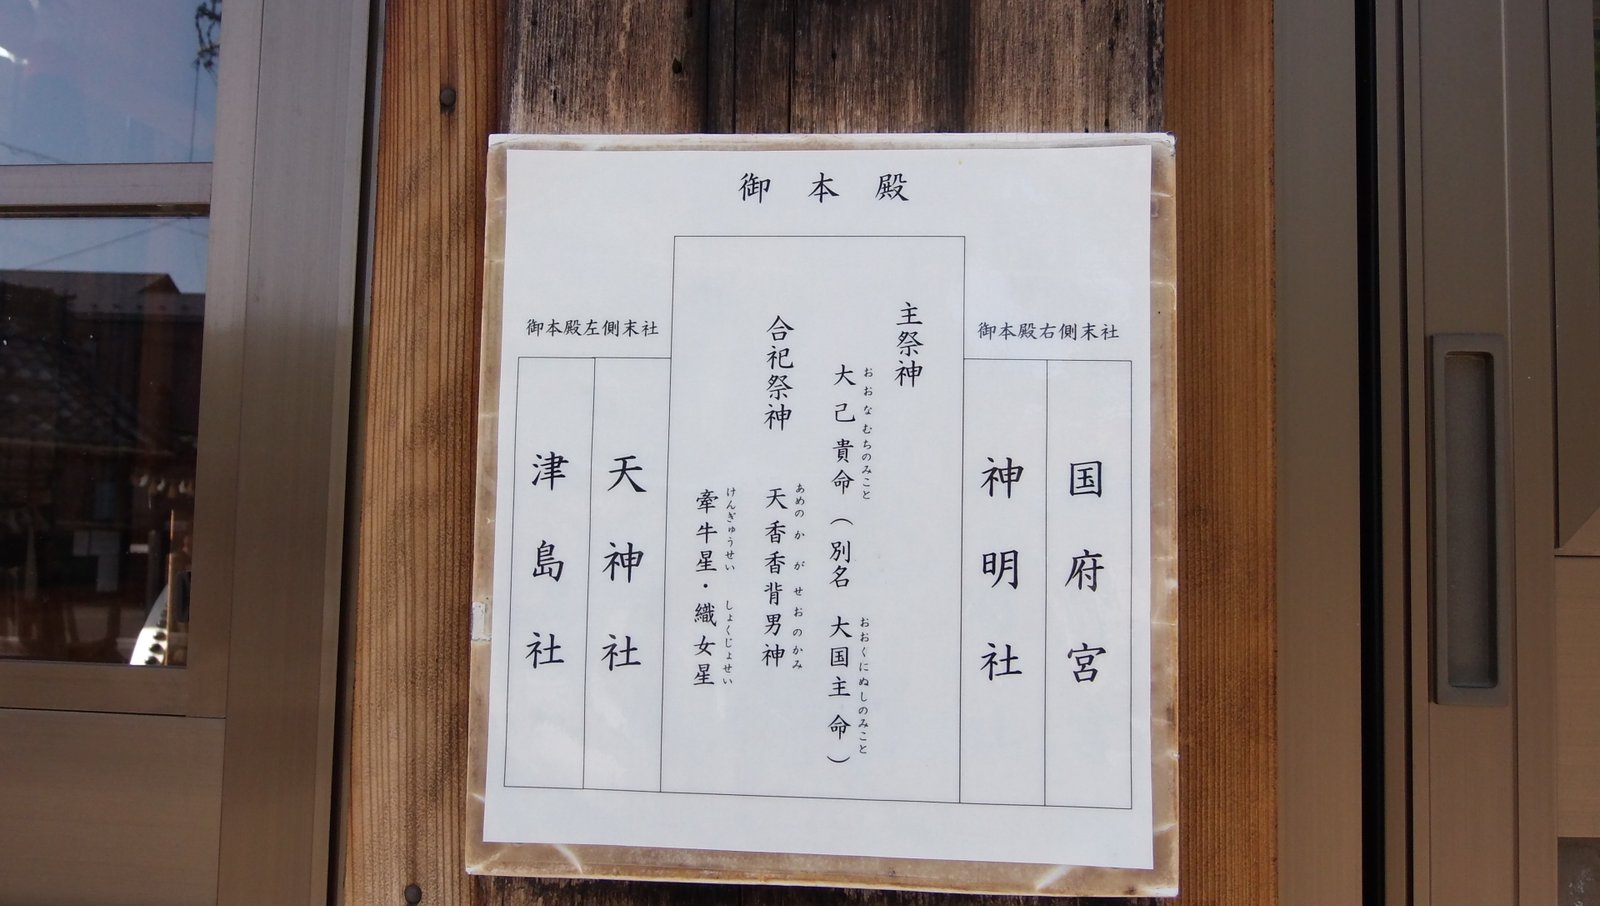 御本殿
御本殿右側末社
国府宮
神明社
主祭神
おおなむちのみこと
大己貴命(別名 大国主命)
おおくにぬしのみこと
合祀祭神
あめのかがせおのかみ
天香香背男神
けんぎゅうせい しょくじょせい
牽牛星・織女星
御本殿左側末社
天神社
津島社